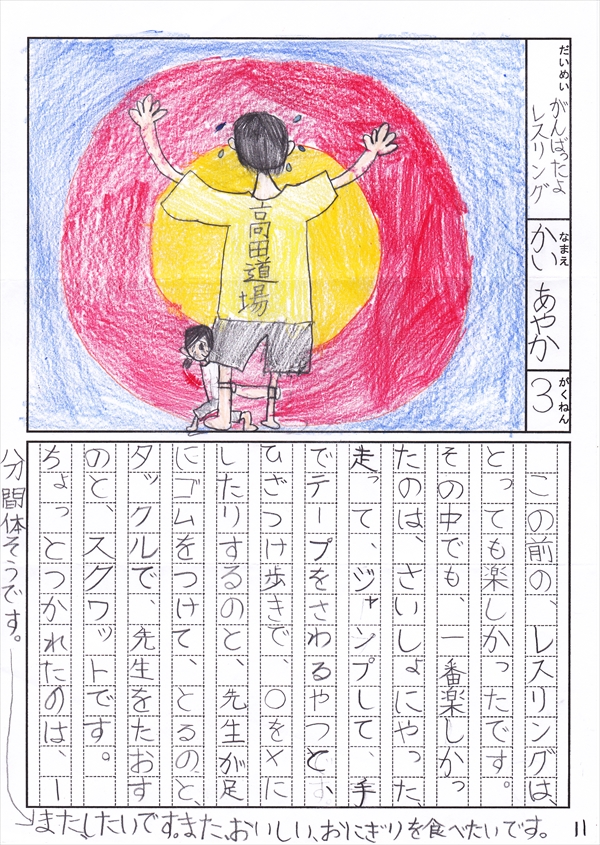 だいめい
がんばったよ
レスリング
なまえ
かい あやか
がくねん
3
高田道場
この前の、レスリングは、
とっても楽しかったです。
その中でも、一番楽しかっ
たのは、さいしょにやった、
走って、ジャンプして、手
でテープをさわるやつと、
ひざつけ歩きで、○を×に
したりするのと、先生が足
にゴムをつけて、とるのと、
タックルで、先生をたおす
のと、スクワットです。
ちょっとつかれたのは、一
分間体そうです。
また、したいです。また、おいしい、おにぎりを食べたいです。
11